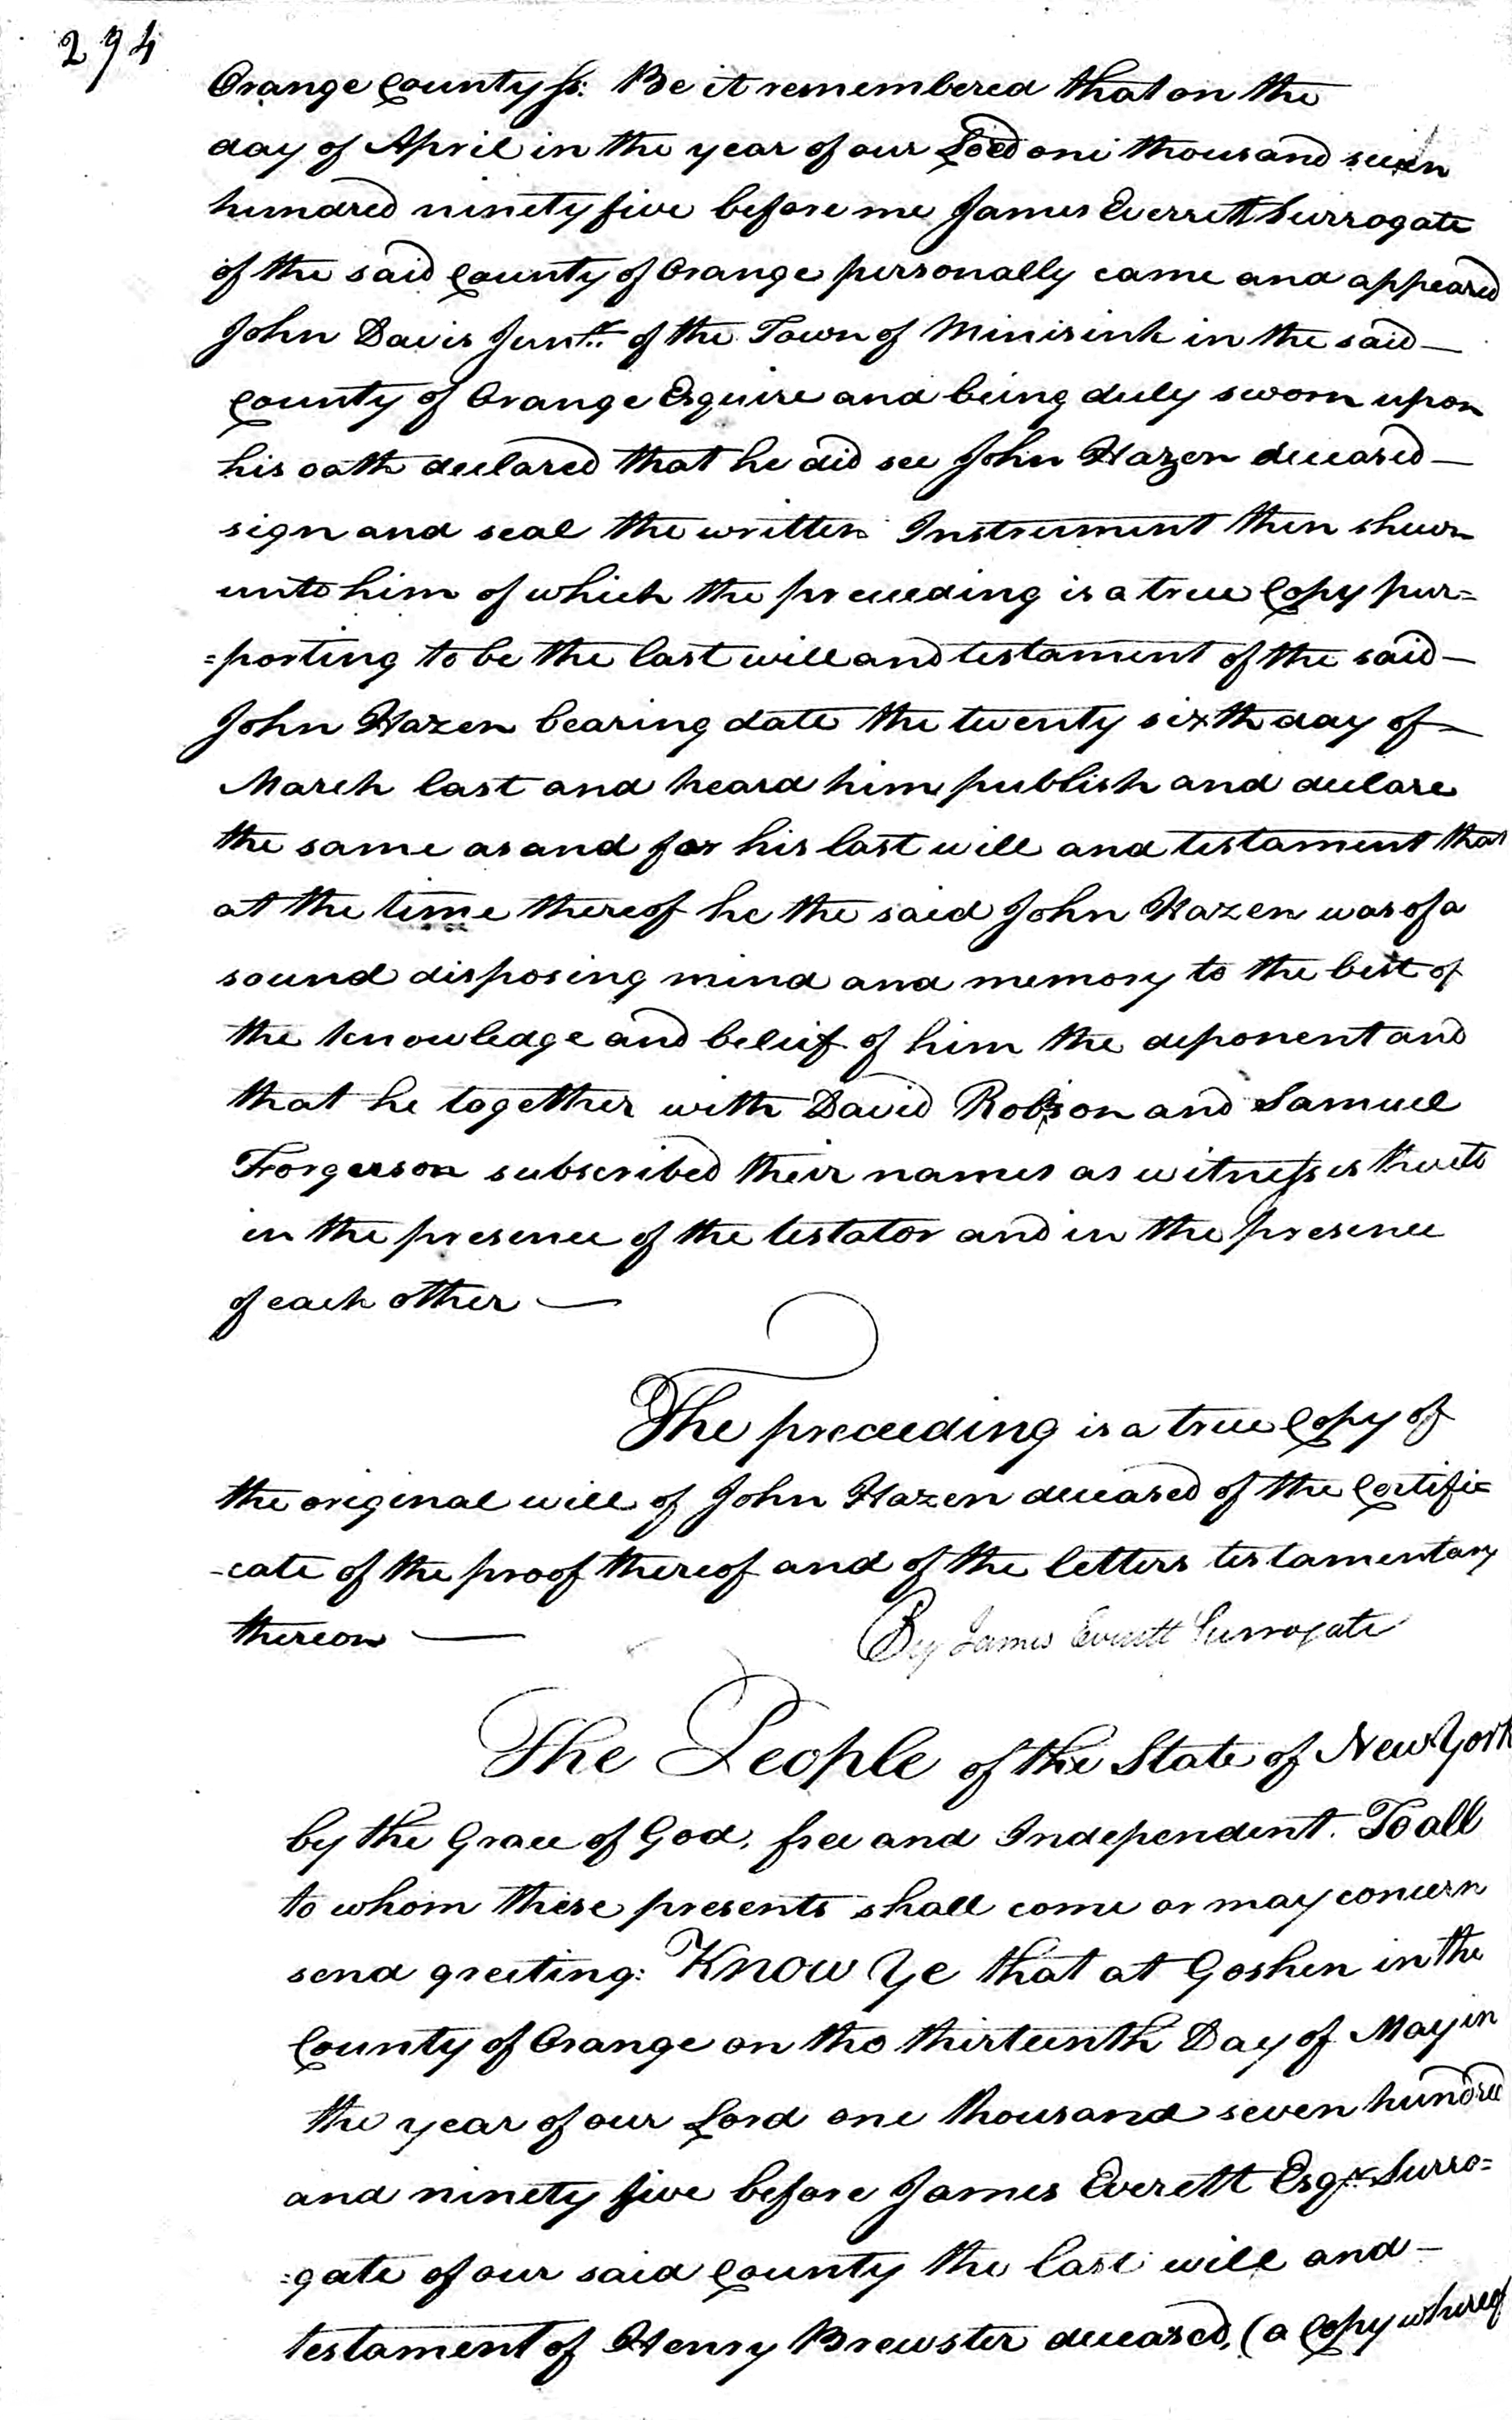 294
Orange County ss: Be it remembered that on the
day of April in the year of our Lord one thousand seven
hundred ninety five before me James Everrett Surrogate
of the said County of Orange personally came and appeared
John Davis Junr. of the Town of Minisink in the said —
County of Orange Esquire and being duly sworn upon
his oath declared that he did see John Hazen deceased —
sign and seal the written Instrument then shewn
unto him of which the preceeding is a true Copy pur=
=porting to be the last will and testament of the said —
John Hazen bearing date the twenty sixth day of —
March last and heard him publish and declare
the same as and for his last will and testament that
at the time thereof he the said John Hazen was of a
sound disposing mind and memory to the best of
the knowledge and belief of him the deponent and
that he together with David Robson and Samuel
Forgerson subscribed their names as witnesses thereto
in the presence of the testator and in the presence
of each other —
The preceeding is a true Copy of
the original will of John Hazen deceased of the Certifi=
-cate of the proof thereof and of the letters testamentary
thereon — By James Everett Surrogate
The People of the State of New York
by the Grace of God, free and Independent. To all
to whom these presents shall come or may concern
send greeting: Know Ye that at Goshen in the
County of Orange on the thirteenth Day of May in
the year of our Lord one thousand seven hundred
and ninety five before James Everett Esqr. Surro=
=gate of our said County the last will and —
testament of Henry Brewster deceased, (a Copy whereof